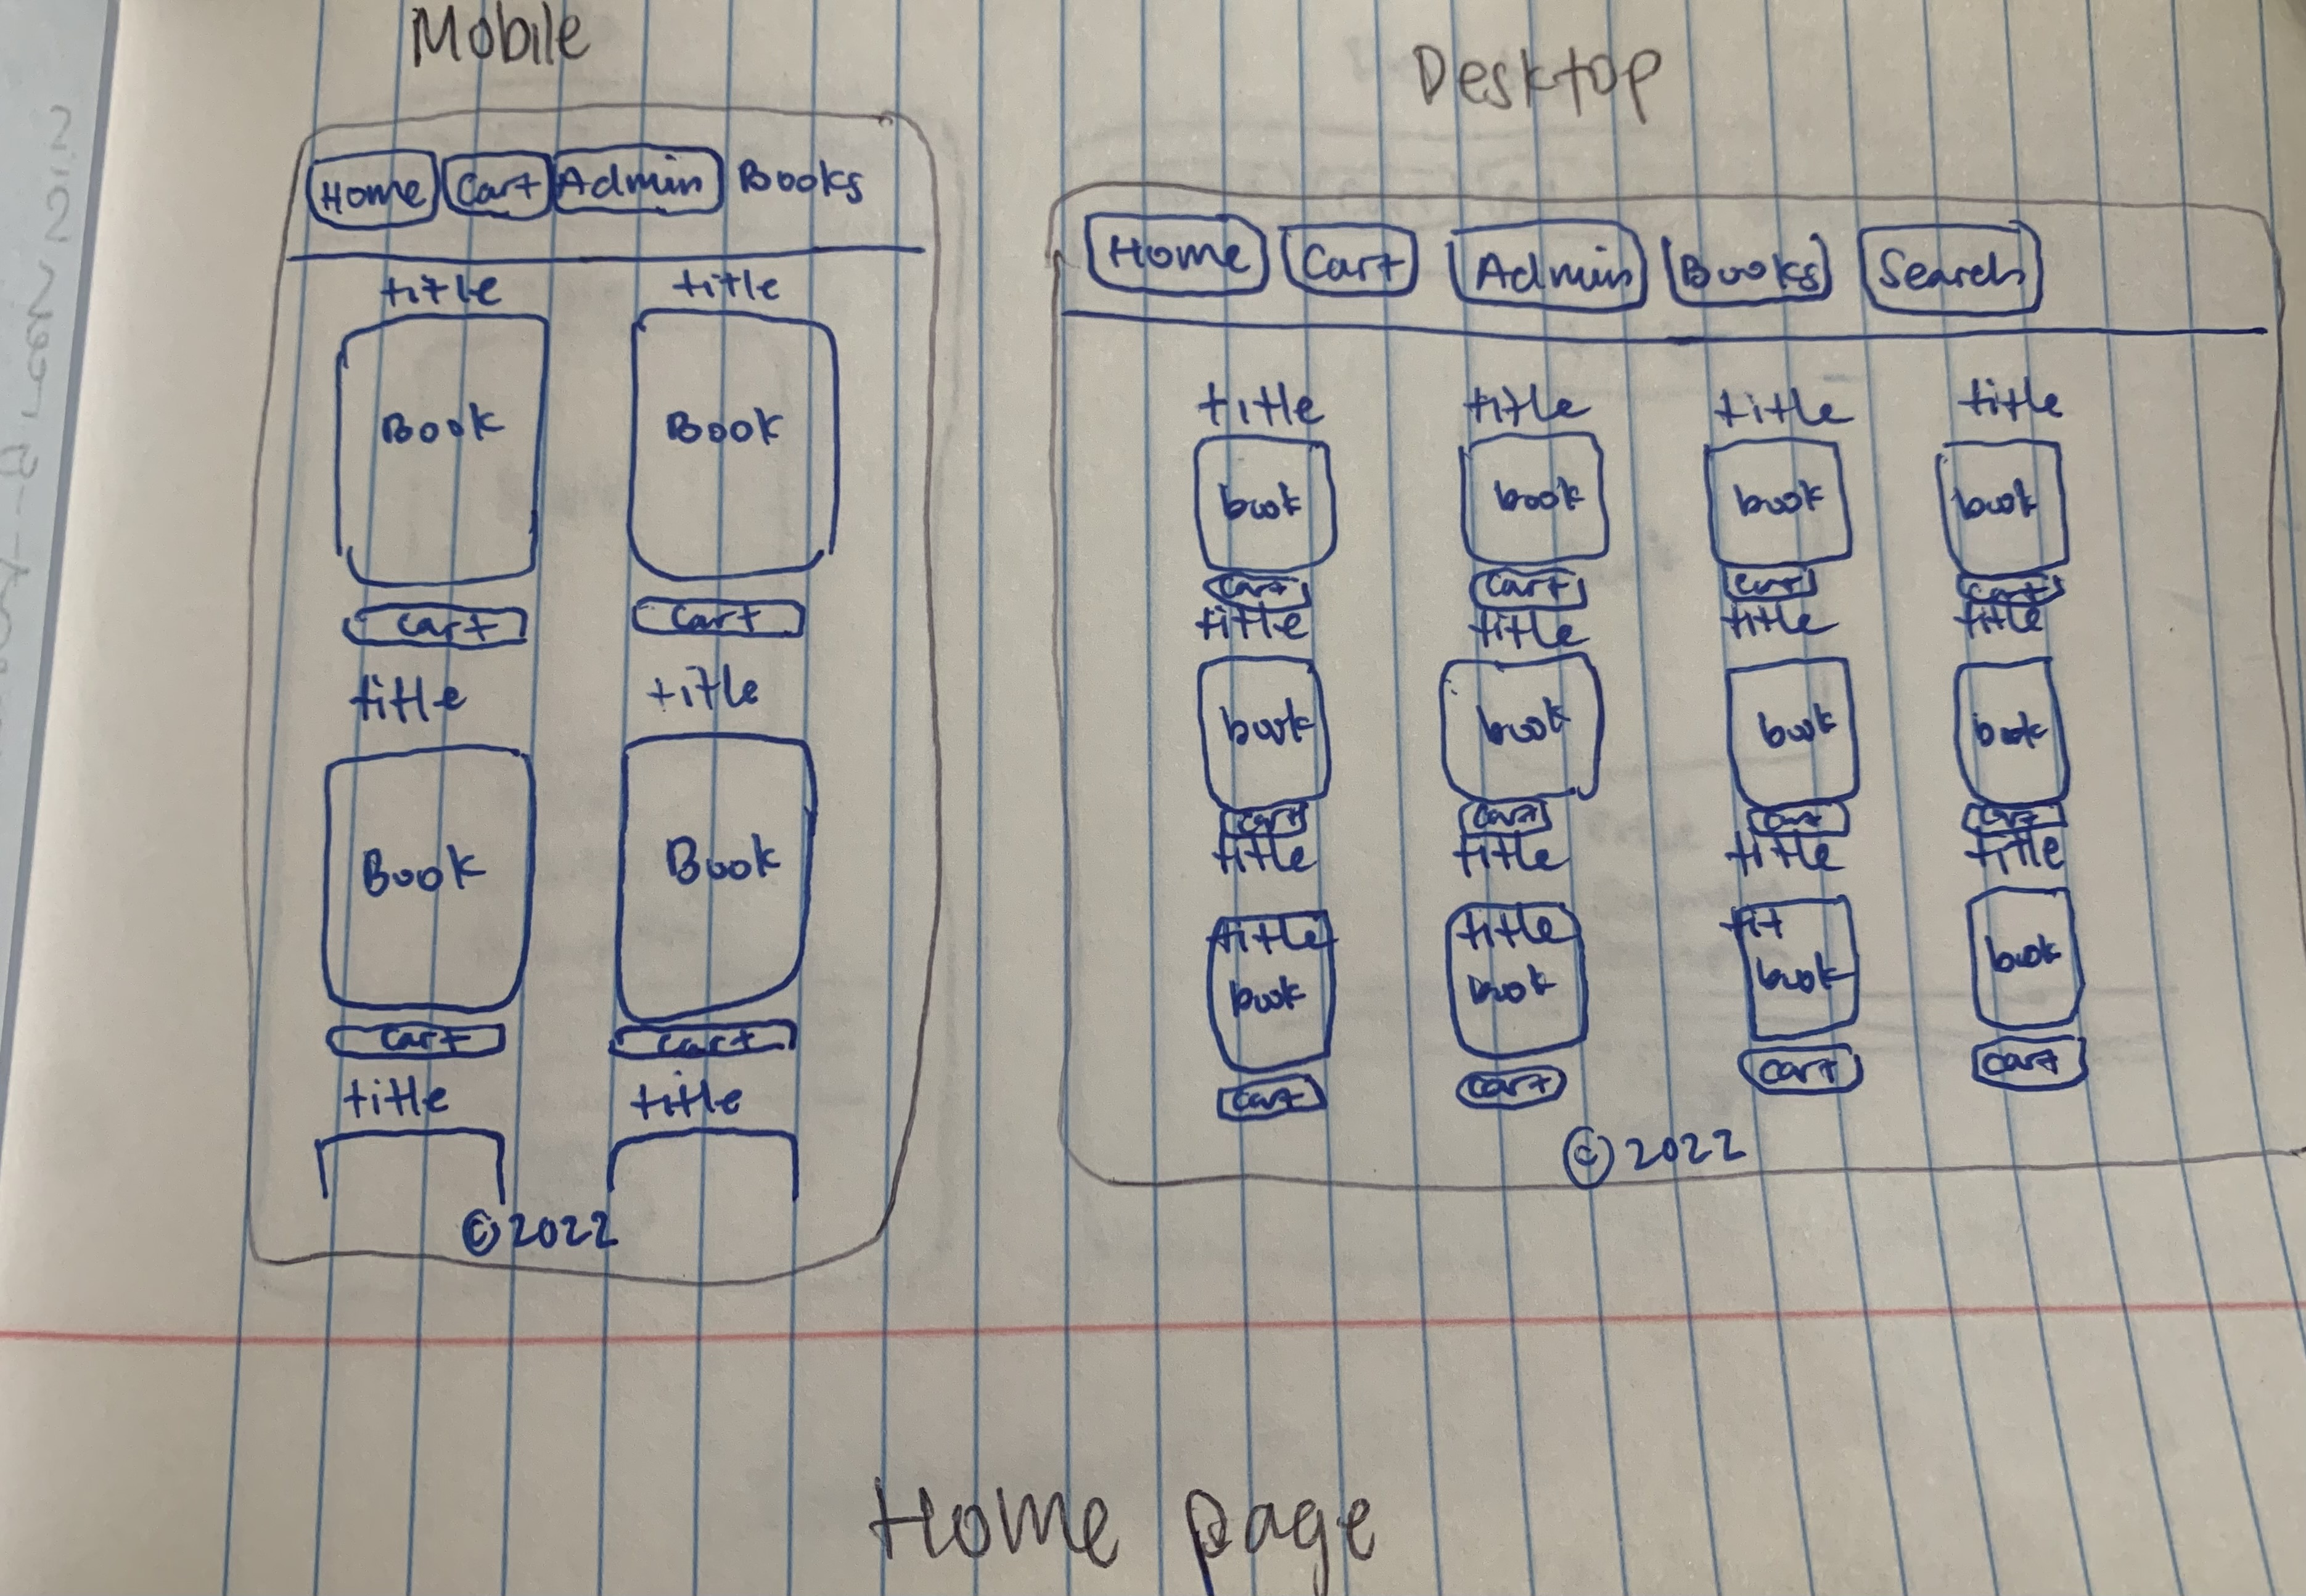 Mobile
Home Cart Admin Books
title title
Book Book
Cart Cart
title title
Book Book
Cart Cart
title title
© 2022
Desktop
Home Cart Admin Books Search
title title title title
book book book book
Cart Cart Cart Cart
title title title title
book book book book
Cart Cart Cart Cart
title title title title
title title tit
book book book book
Cart Cart Cart Cart
© 2022
Home page